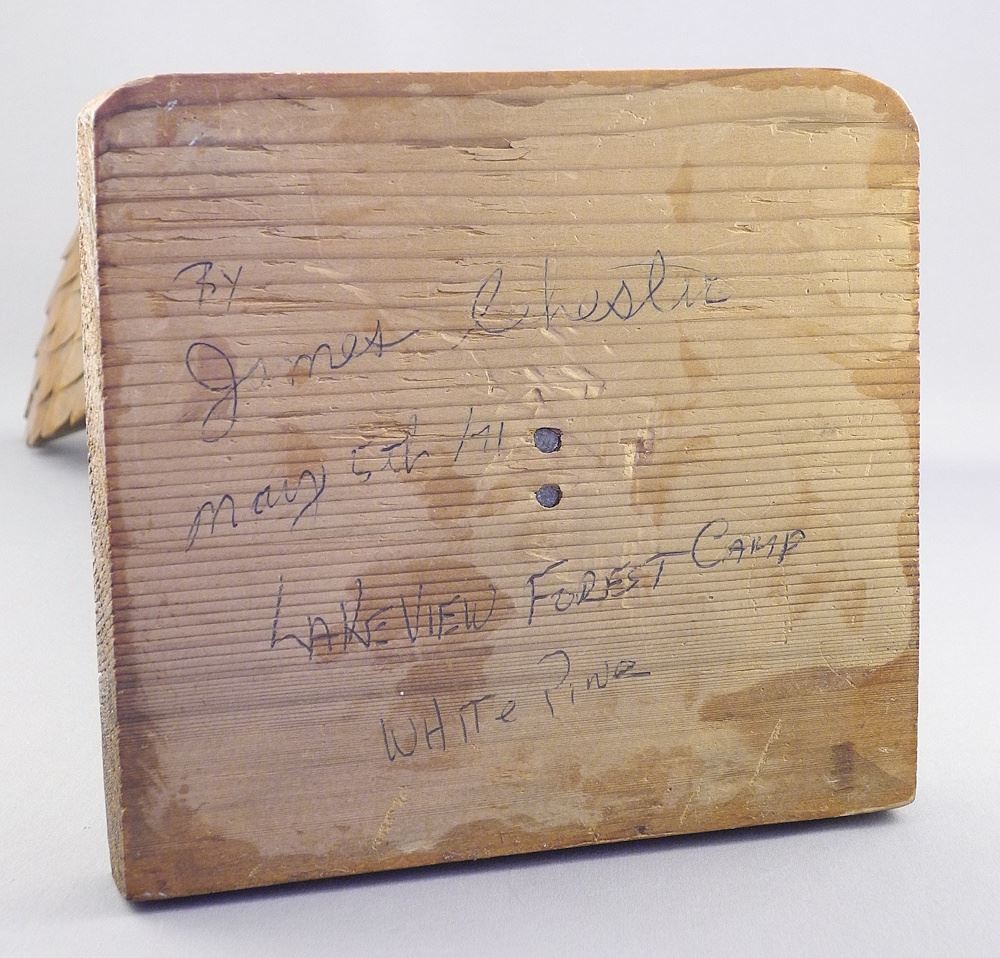 BY
James
May 5th /71
LAKEVIEW FOREST CAMP
WHITe Pine